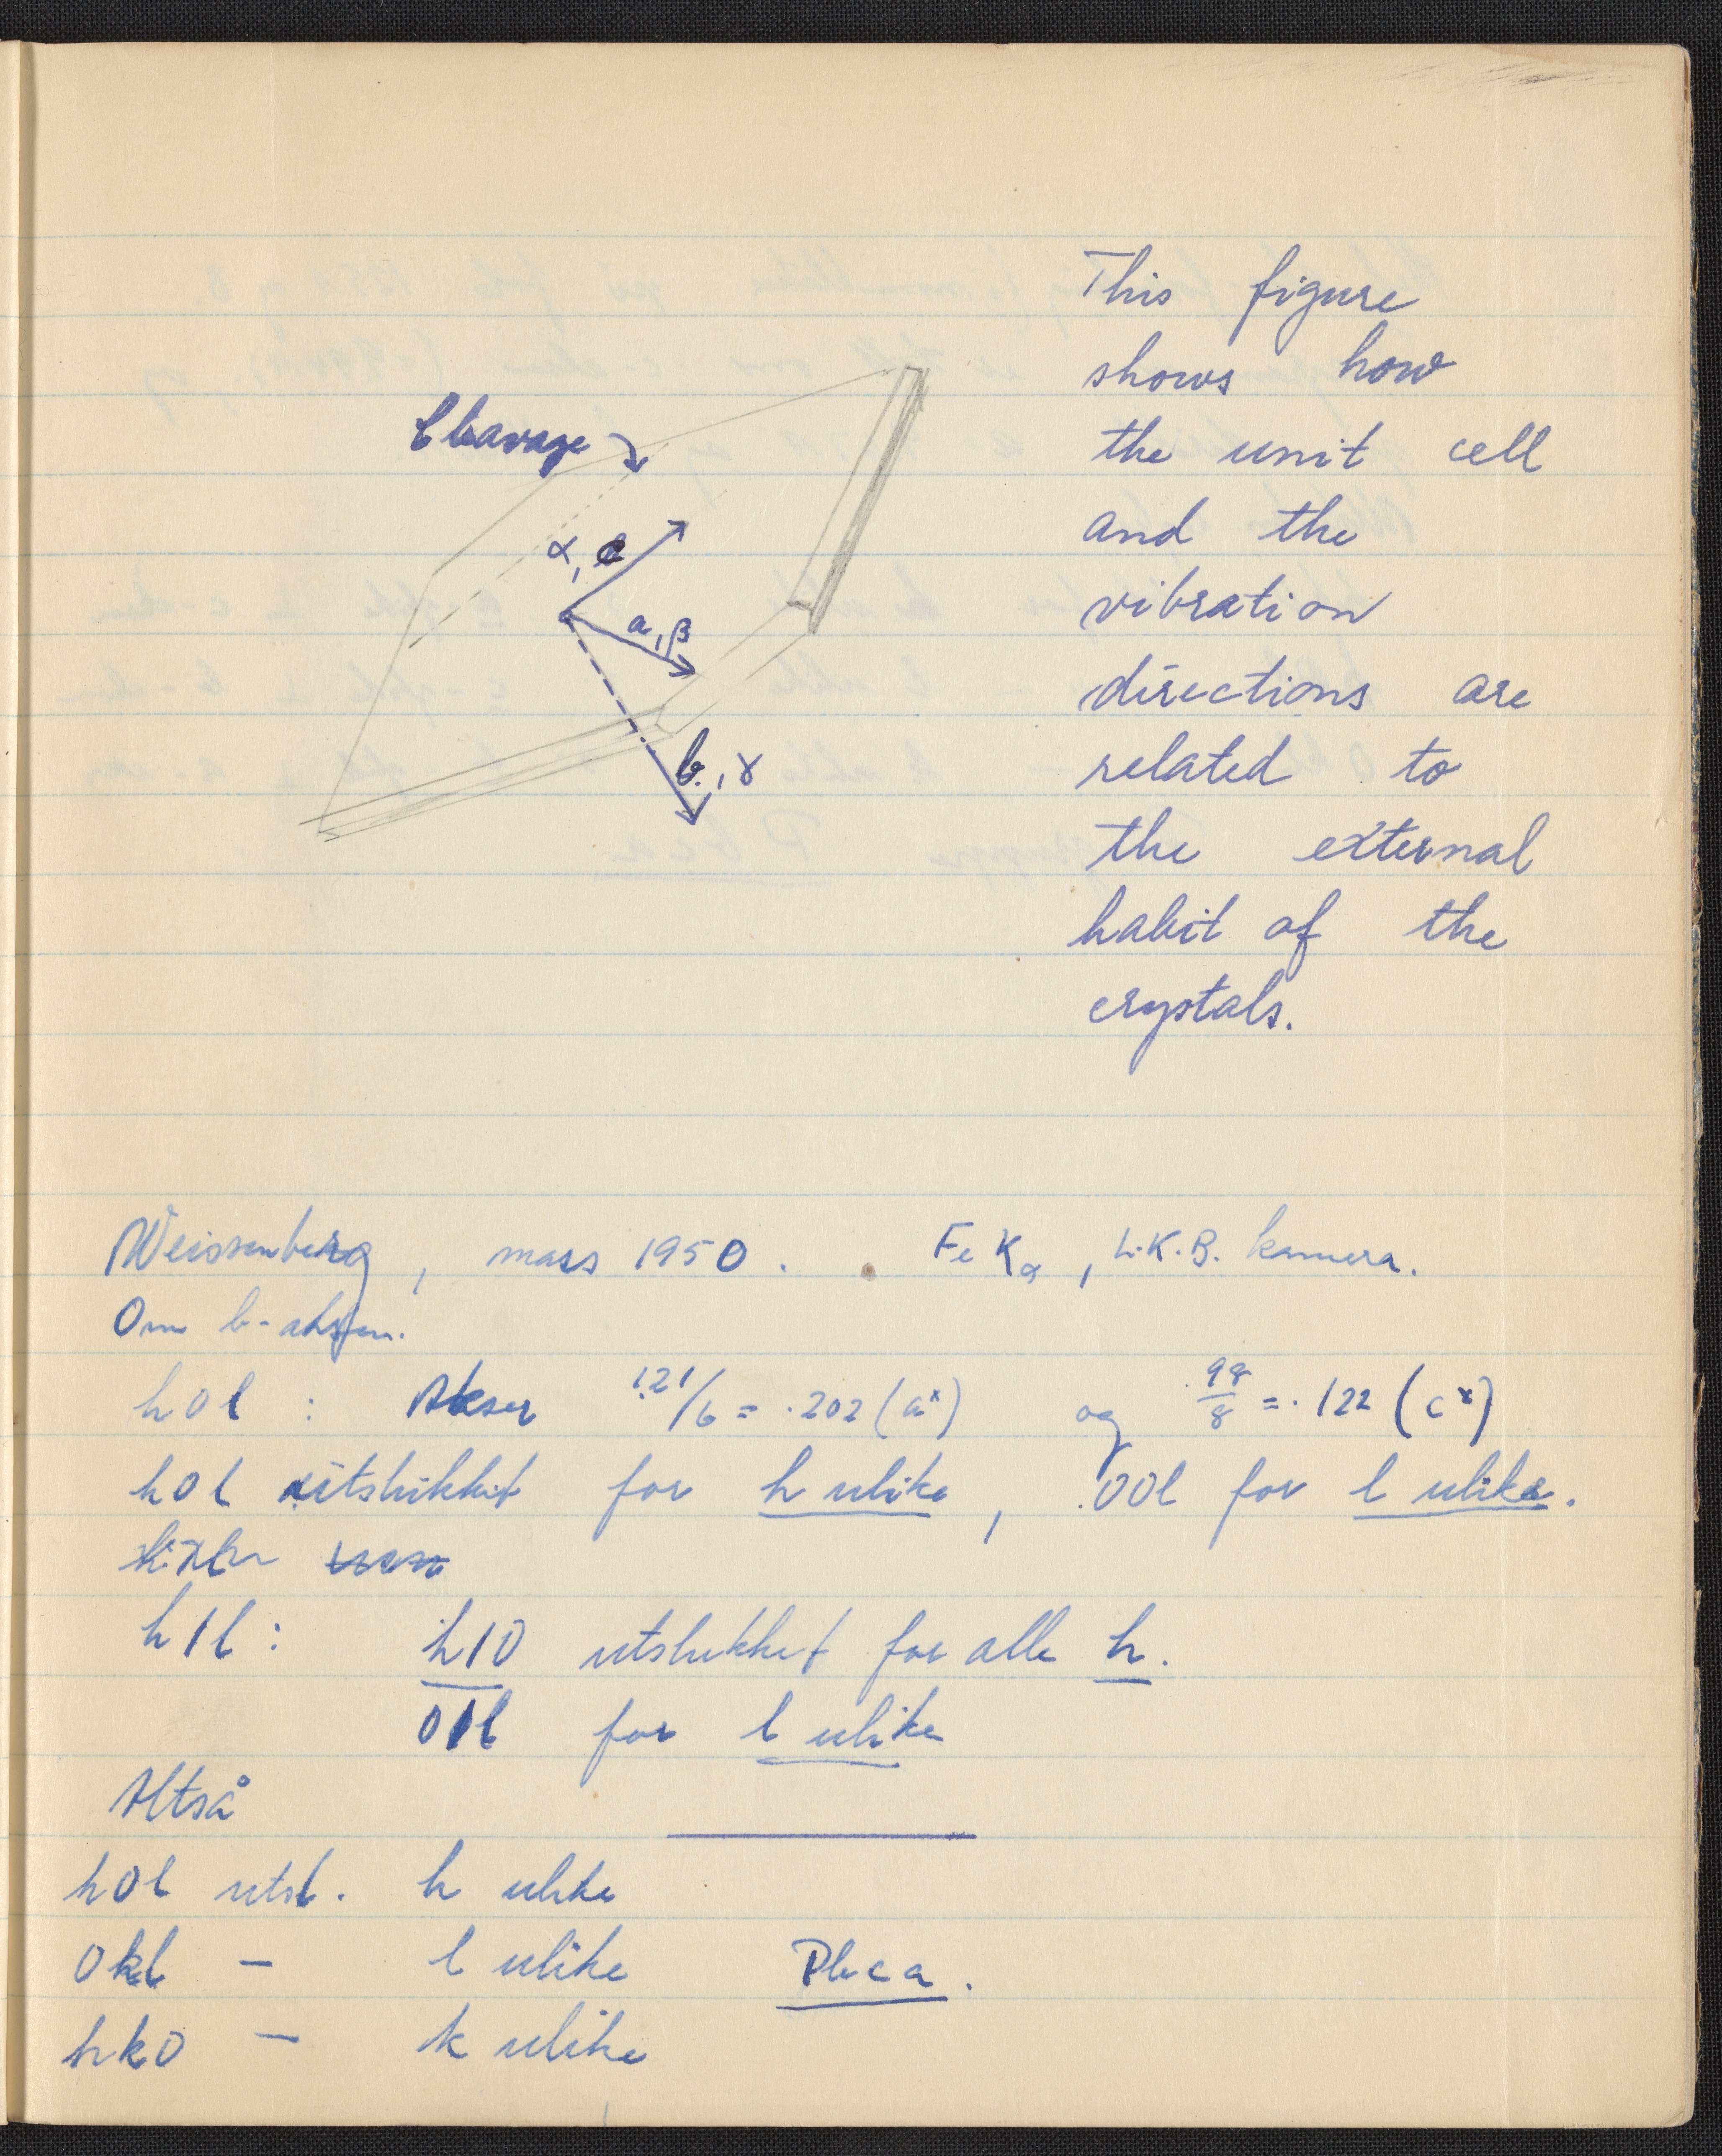 Cleavage
α, c
a, β
b, γ
This figure
shows how
the unit cell
and the
vibration
directions are
related to
the external
habit of the
crystals.
Weissenberg, mars 1950. Fe Kα, L.K.B. kamera.
Om b-aksen.
h0l : Akser 1.21/6 = .202 (a*) og .98/8 = .122 (c*)
h0l utslukket for h ulike, 00l for l ulike.
h1l: h10 utslukket for alle h.
01l for l ulike
Altså
h0l utsl. h ulike
0kl — l ulike Pbca.
hk0 — k ulike